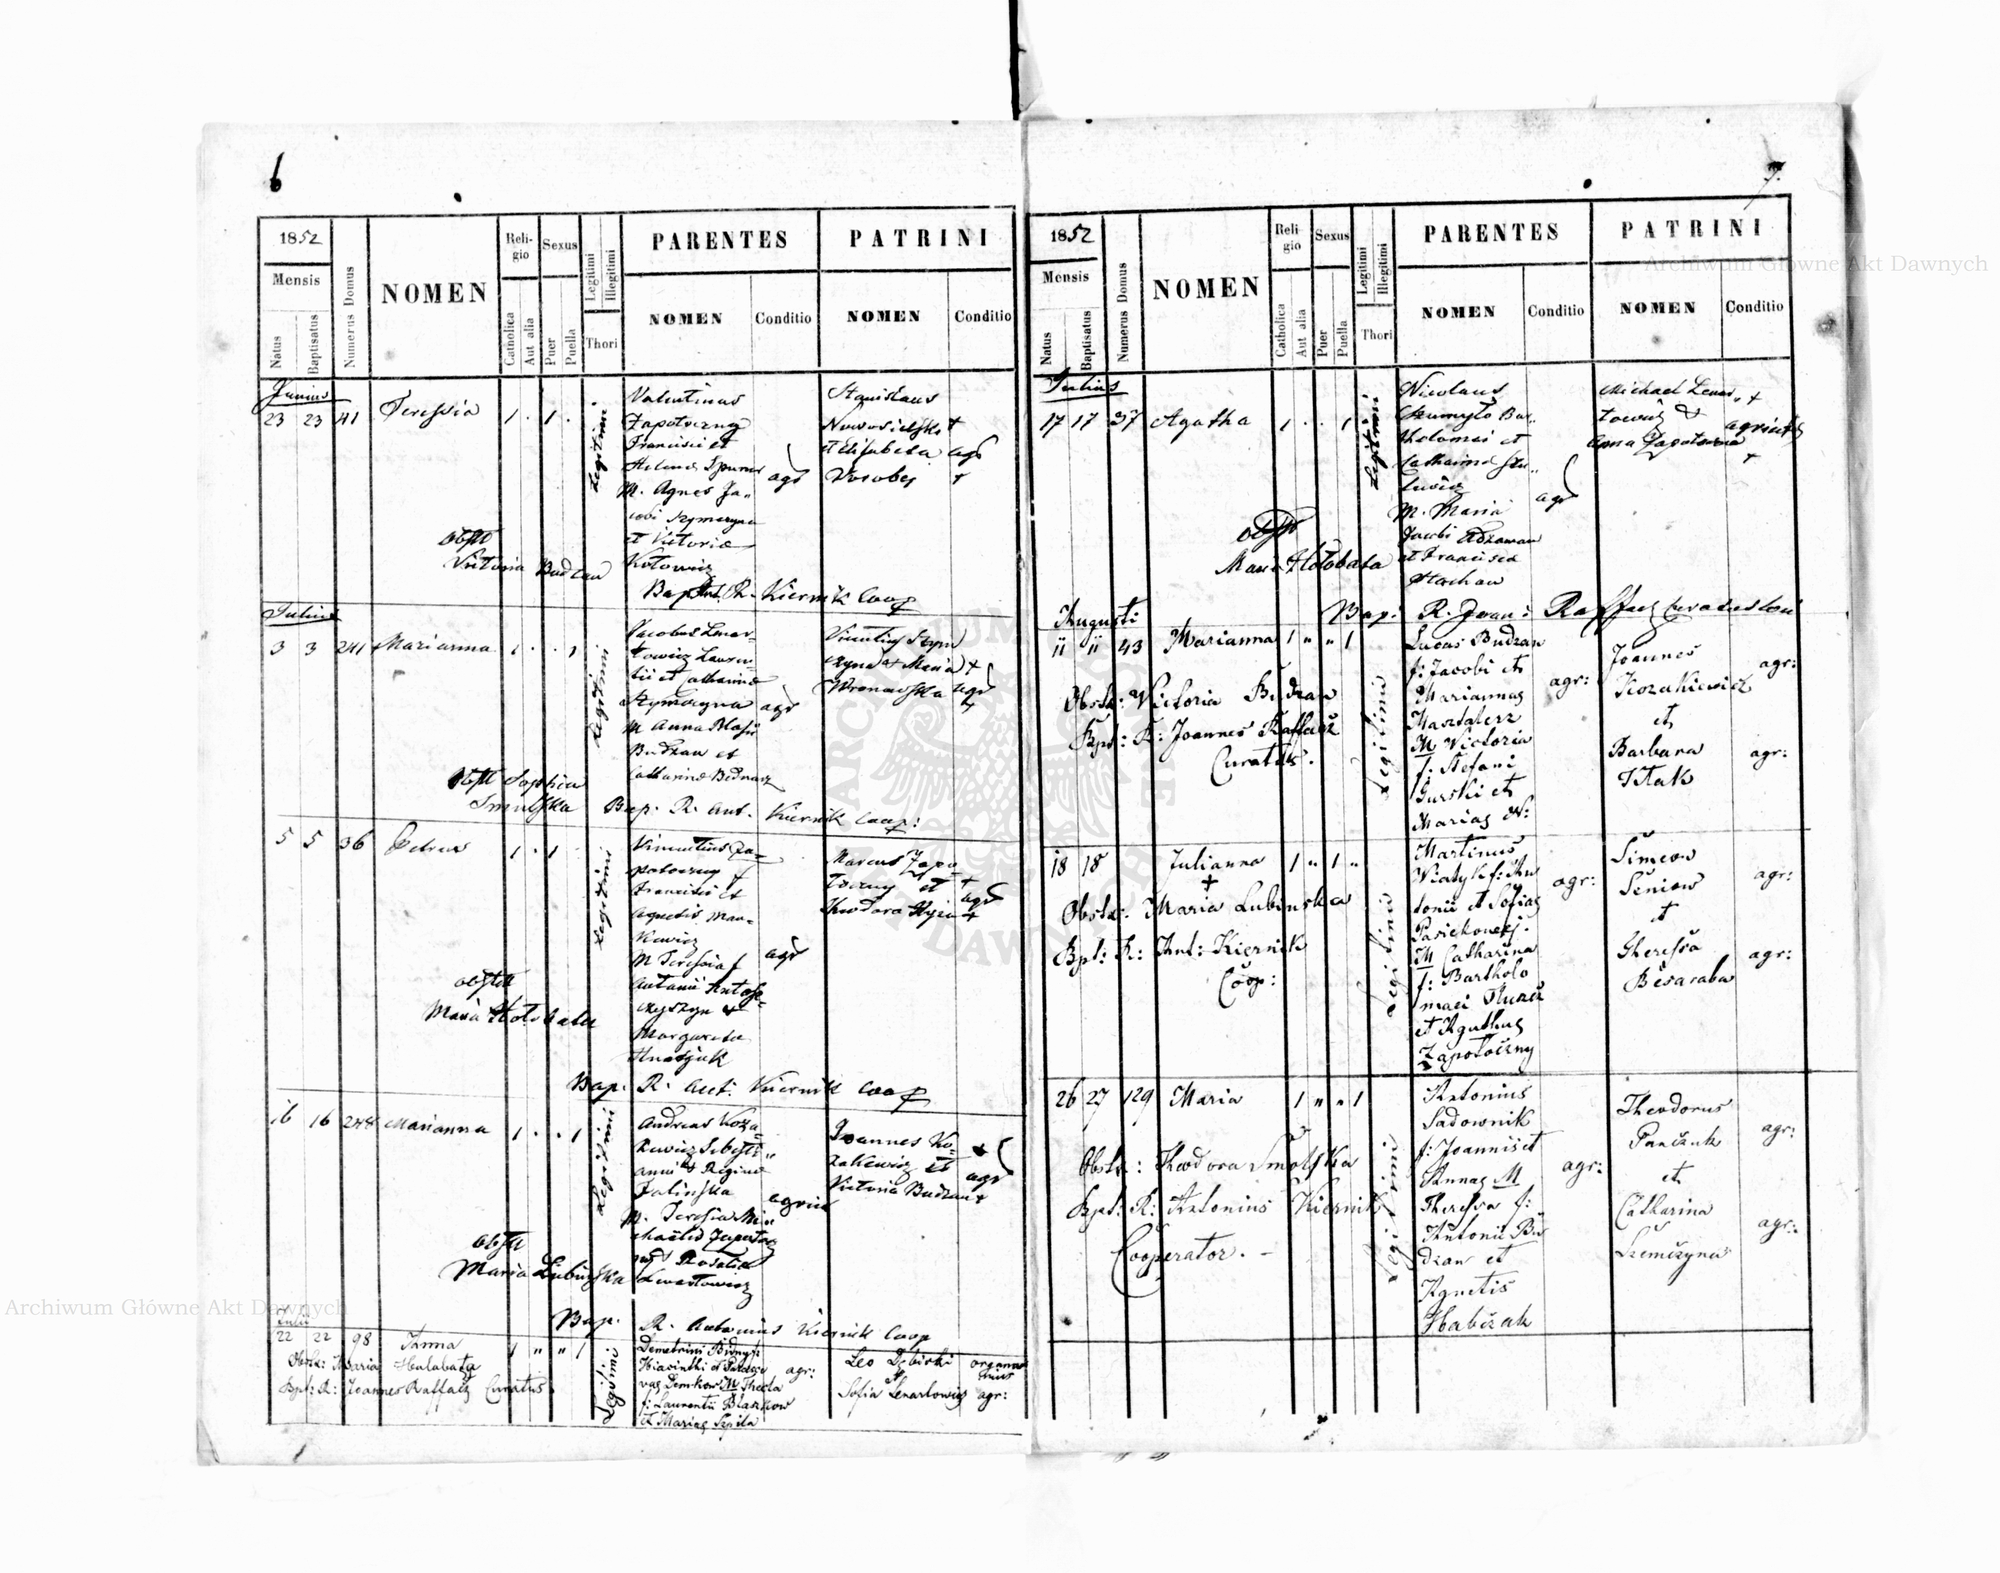 6
1852
Mensis
Natus
Baptisatus
Numerus Domus
NOMEN
Reli-
gio
Catholica
Aut alia
Sexus
Puer
Puella
Legitimi
Illegitimi
Thori
PARENTES
NOMEN
Conditio
PATRINI
NOMEN
Conditio
Junius
23 23 41 Teressia 1 . 1 .
Legitimi
Valentinus
Zapotoczny
Francisci et
Helena
M. Agnes Ja-
cobi Szymczyna
et Victoria
Kotowicz
agr
Stanislaus
Nowosielski +
et Elisabetha agr
+
obst
Victoria Budzan
Bap. Ant. R. Kiernik Coop
Julius
3 3 241 Marianna 1 . . 1
Legitimi
Jacobus Lenar-
towicz Lauren-
tii et Catharina
Szymczyna agr
M Anna Blasii
Budzan et
Catharina Bednarz
Vincentius Szym
czyna et Maria +
Wronowska agr
+
Obst Sophia
Smulska
Bap. R. Ant. Kiernik Coop:
5 5 36 Petrus 1 . 1
Legitimi
Vincentius Za-
potoczny f
Francisci et
Agnetis Mar-
kewicz
M Teressia f
Antonii Antos-
czyszyn et
Margareta
Hnatjuk
agr
Marcus Zapo-
toczny et +
agr
Theodora +
obst
Maria Hołobata
Bap. R. Ant: Kiernik Coop
16 16 244 Marianna 1 . . 1
Legitimi
Andreas Koza-
kewicz Sebasti-
anni et Regina
Jalinska
M. Teressia Mi-
chaelis Zapotocz
et Rosalia
Lenartowicz
agricol
Joannes Ko- +
zakewicz et agr
Victoria Budzan +
obst
Maria Lubinska
Bap. R. Antonius Kiernik Coop
Julii
22 22 98 Anna 1 " " 1
Obstx: Maria Halabata
Bpt: R: Joannes Raffacz Curatus
Legitimi
Demetrius Bidny f:
Hiacinthi et Paras
vas Demkow M Thecla
f: Laurentii Blazkow
et Marias Szpila
agr:
Leo Dębicki organa
rius
et
Sofia Lenartowicz agr:
7.
1852
Mensis
Natus
Baptisatus
Numerus Domus
NOMEN
Reli-
gio
Catholica
Aut alia
Sexus
Puer
Puella
Legitimi
Illegitimi
Thori
PARENTES
NOMEN
Conditio
PATRINI
NOMEN
Conditio
Julius
17 17 37 Agatha 1 . . 1
Legitimi
Nicolaus
Czumyło Bar-
tholomei et
Catharina
M. Maria
Jacobi
et Francisca
Stachow
agr
Michael Lenar- +
towicz et
Anna Zapotoczna
+
obst
Maria Hołobata
Bap: R. Joan: Raffacz Curatus loci
Augusti
11 11 43 Marianna 1 " " 1
Legitimi
Lucas Budzan
f: Jacobi et
Mariannas
Masztalerz
M Victoria
f: Stefani
Gurski et
Marias N:
agr:
Joannes
Kozakiewicz
et
Barbara
Ptak
agr:
agr:
Obstx: Victoria Budzan
Bpt: R: Joannes Raffacz
Curatus.
18 18 Julianna 1 " 1 "
+
Legitimi
Martinus
Wiatyk f: An
tonii et Sofias
Pasiekonskj.
M Catharina
f: Bartholo
maei
et Agathas
Zapotoczny
agr:
Simeon
Seniow
et
Theressa
Besaraba
agr:
agr:
Obstx: Maria Lubinska
Bpt: R: Ant: Kiernik
Coop:
26 27 129 Maria 1 " " 1
Legitimi
Antonius
Sadownik
f: Joannis et
Annas M
Theressa f:
Antonii Bu
dzan et
Agnetis
Habczak
agr:
Theodorus
Panczuk
et
Catharina
Szemczyna
agr:
agr:
Obstx: Theodora Smolska
Bpt: R: Antonius Kiernik
Cooperator. -
Archiwum Główne Akt Dawnych
Archiwum Główne Akt Dawnych
ARCHIWUM GŁÓWNE AKT DAWNYCH